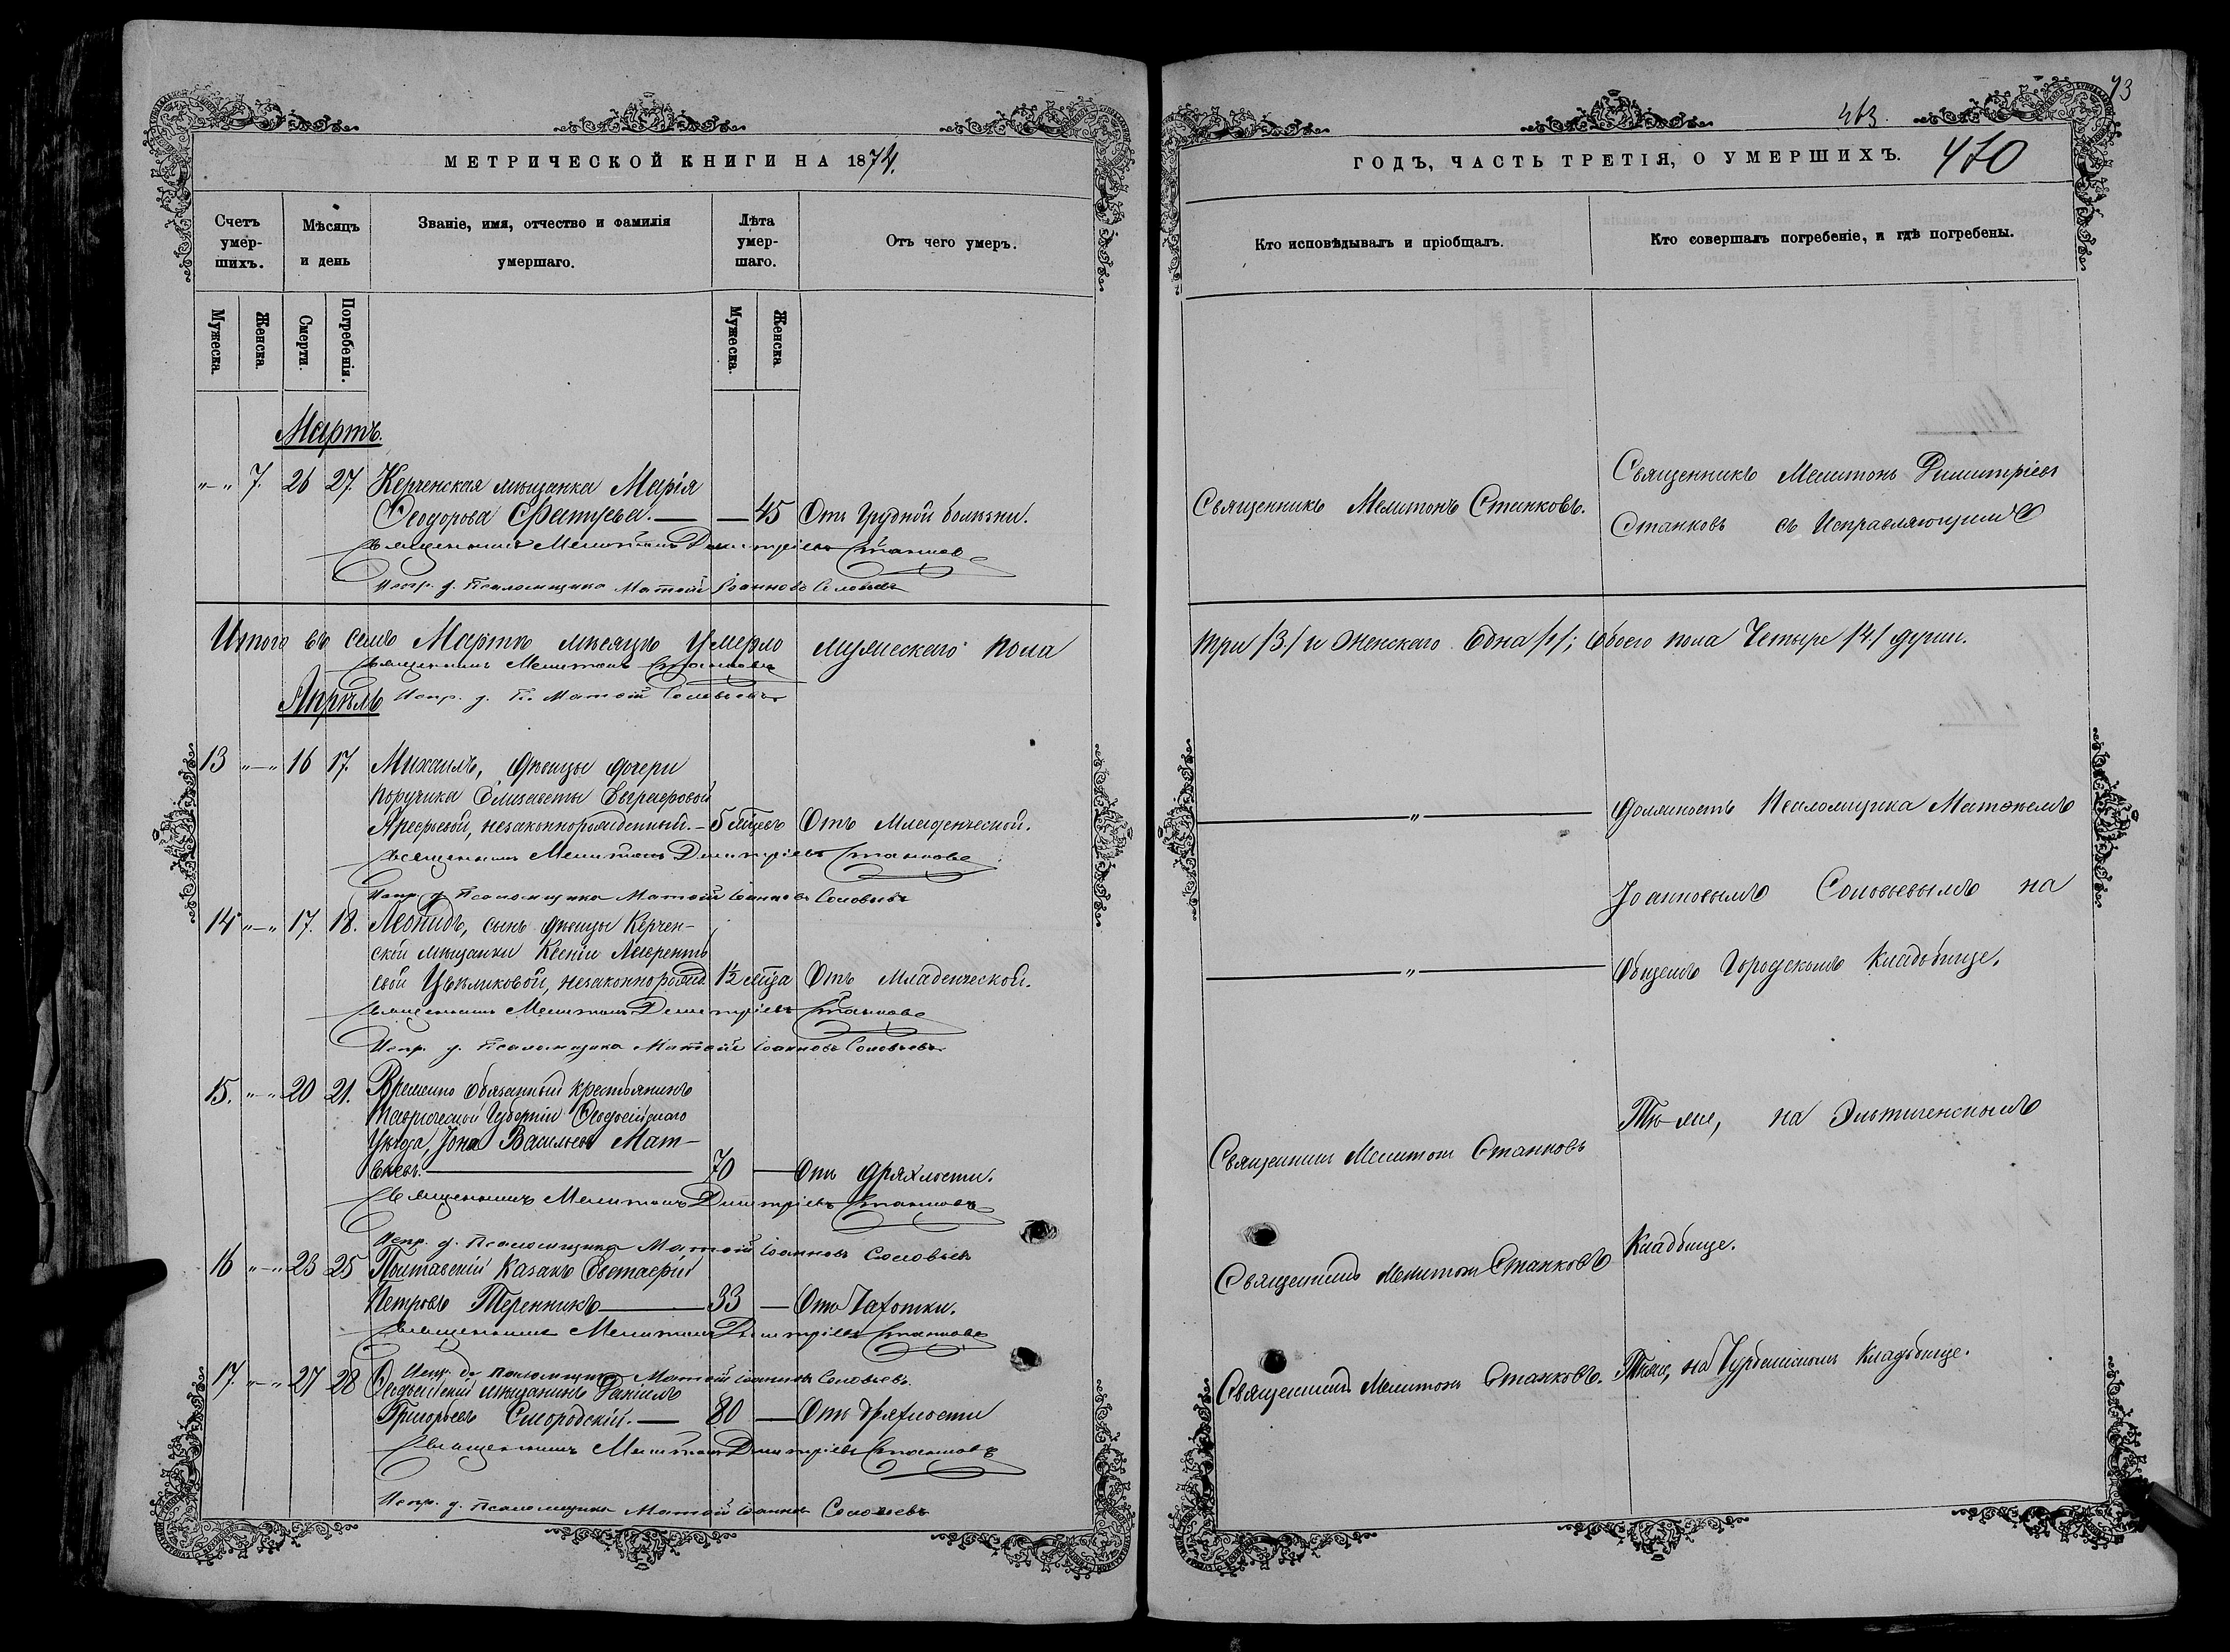 МЕТРИЧЕСКОЙ КНИГИ НА 1874.
Счетъ умер-шихъ.
Мѣсяцъ и день
Званіе, имя, отчество и фамилія умершаго.
Лѣта умер-шаго.
Отъ чего умеръ.
Мужеска.
Женска
Смерти.
Погребенія.
Мужеска.
Женска
Мартъ.
„-„ 7. 26 27. Керченская мѣщанка Марія
Ѳеодорова — — 45 Отъ Грудной болѣзни.
Священникъ Мелитонъ Димитріевъ Станковъ
Испр. д. Псаломщика Матѳій Іоанновъ Соловьевъ
Итого въ семъ Мартѣ мѣсяцѣ Умерло мужескаго пола
Священникъ Мелитонъ Станковъ
Испр. д. Пс. Матѳій Соловьевъ
Апрѣль
13 „-„ 16 17. Михаилъ, дѣвицы дочери
поручика Елизаветы Евграфовой
Арефьевой, незаконнорожденный. – 5 мѣсцевъ Отъ Младенческой.
Священникъ Мелитонъ Димитріевъ Станковъ
Испр. д. Псаломщика Матѳій Іоанновъ Соловьевъ
14 „-„ 17. 18. Леонидъ, сынъ дѣвицы Керчен-
ской мѣщанки Ксеніи Лаврентье
вой незаконнорожд. 1½ мѣсца Отъ Младенческой.
Священникъ Мелитонъ Димитріевъ Станковъ
Испр. д. Псаломщика Матѳій Іоанновъ Соловьевъ
15. „-„ 20 21. Временно обязанный крестьянинъ
Таврической Губерніи Ѳеодосійскаго
Уѣзда, Іона Васильевъ Мат-
вѣевъ. — 70 — Отъ дряхлости.
Священникъ Мелитонъ Димитріевъ Станковъ
Испр. д. Псаломщика Матѳій Іоанновъ Соловьевъ
16 „-„ 23 25 Полтавскій Казакъ Евстафій
Петровъ Теренникъ — 33 — Отъ Чахотки.
Священникъ Мелитонъ Димитріевъ Станковъ
Испр. д. Псаломщика Матѳій Іоанновъ Соловьевъ.
17. „-„ 27 28 Ѳеодосійскій мѣщанинъ Даніилъ
Григорьевъ Смородскій. — 80 — Отъ дряхлости
Священникъ Мелитонъ Димитріевъ Станковъ
Испр. д. Псаломщика Матѳій Іоанновъ Соловьевъ
73
463.
ГОДЪ, ЧАСТЬ ТРЕТІЯ, О УМЕРШИХЪ. 470
Кто исповѣдывалъ и пріобщалъ.
Кто совершалъ погребеніе, и гдѣ погребены.
Священникъ Мелитонъ Станковъ.
Священникъ Мелитонъ Димитріевъ
Станковъ съ Исправляющимъ
три /3/ и Женскаго Една /1/; Обоего пола Четыре /4/ души.
— „ — должность Псаломщика Матѳеемъ
Іоанновымъ Соловьевымъ на
— „ — Общемъ Городскомъ Кладбище.
Священникъ Мелитонъ Станковъ
Тѣ-же, на Эльтигенскомъ
Кладбище.
Священникъ Мелитонъ Станковъ
Священникъ Мелитонъ Станковъ.
Тѣже, на Кладбище.